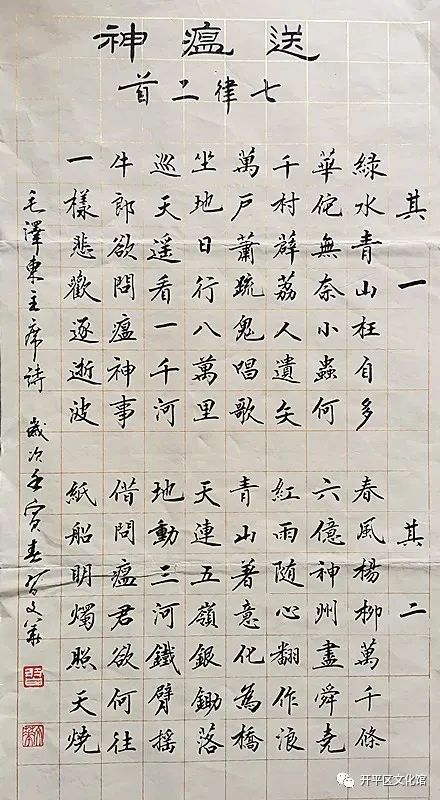 送瘟神
七律二首
其一
綠水青山枉自多
華佗無奈小蟲何
千村薜荔人遺矢
萬戶蕭疏鬼唱歌
坐地日行八萬里
巡天遥看一千河
牛郎欲問瘟神事
一樣悲歡逐逝波
其二
春風楊柳萬千條
六億神州盡舜堯
紅雨隨心翻作浪
青山著意化為橋
天連五嶺銀鋤落
地動三河鐵臂搖
借問瘟君欲何往
紙船明燭照天燒
毛澤東主席詩 歲次壬寅春
开平区文化馆